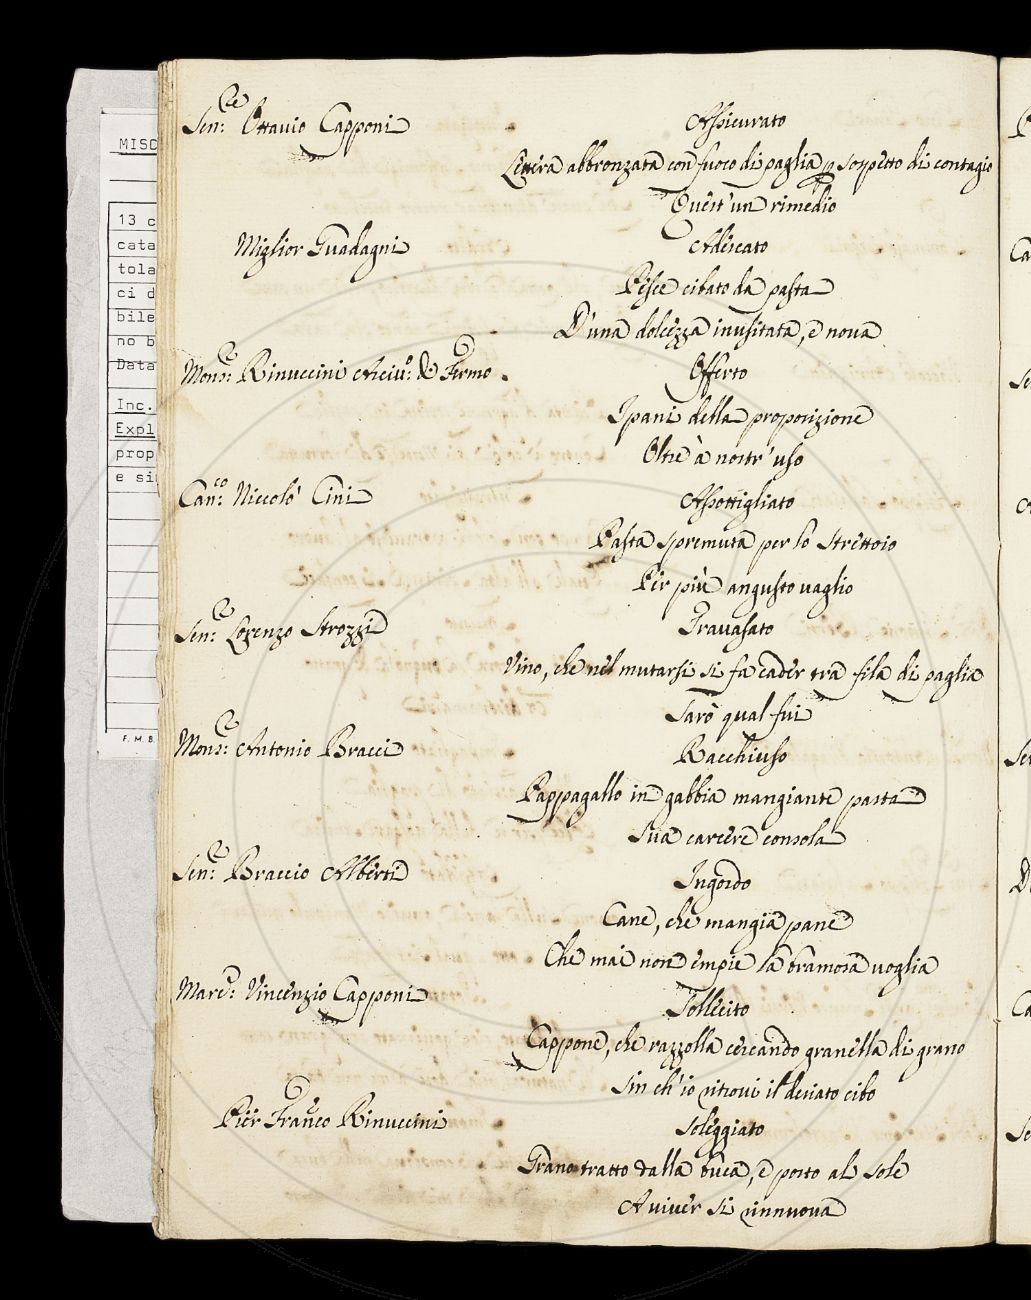 MISC
13 c
cata
tola
ci d
bile
no b
Data
Inc.
Expl
prop
e si
F. M. B.
Sen:re Ottavio Capponi
Assicurato
Lettera abbronzata con fuoco di paglia p sospetto di contagio
Quest'un rimedio
Miglior Guadagni
Adescato
Pesce cibato da pasta
D'una dolcezza inusitata, e nova
Mons:re Rinuccini Arciuo: di Fermo
Offerto
I pani della proporizione
Oltre à nostr'uso
Can:co Niccolò Cini
Assottigliato
Pasta spremuta per lo strettoio
Per più angusto vaglio
Sen:re Lorenzo Strozzi
Travasato
Vino, che nel mutarsi si fa cader tra fila di paglia
Sarò qual fui
Mons:re Antonio Bracci
Racchiuso
Pappagallo in gabbia mangiante pasta
Sua carcere consola
Sen:re Braccio Alberti
Ingordo
Cane, che mangia pane
Che mai non empie la bramosa voglia
Marc: Vincenzio Capponi
Sollecito
Cappone, che razzolla cercando granella di grano
Sin ch'io ritrovi il desiato cibo
Pier Franco Rinuccini
Soleggiato
Grano tratto dalla buca, e posto al sole
A viver si rinnuova